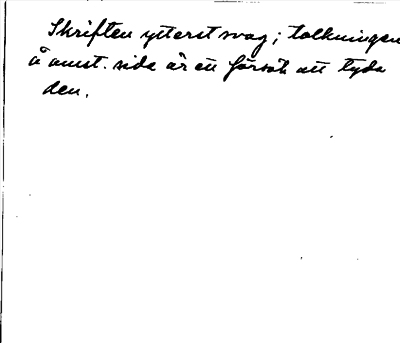 Skriften ytterst svag; tolkningen
å amst. sida är ett försök att tyda
den.